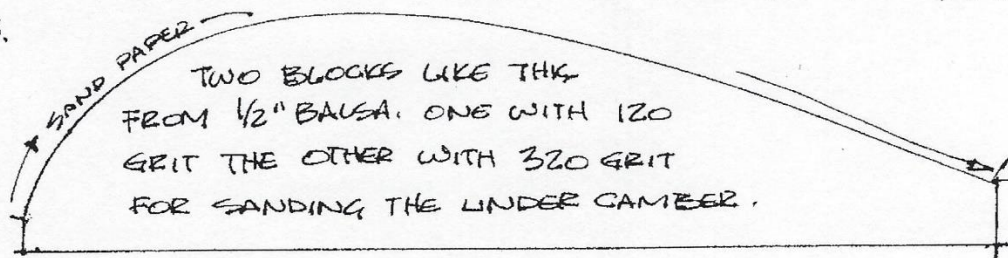 SAND PAPER
TWO BLOCKS LIKE THIS
FROM 1/2" BALSA. ONE WITH 120
GRIT THE OTHER WITH 320 GRIT
FOR SANDING THE UNDER CAMBER.